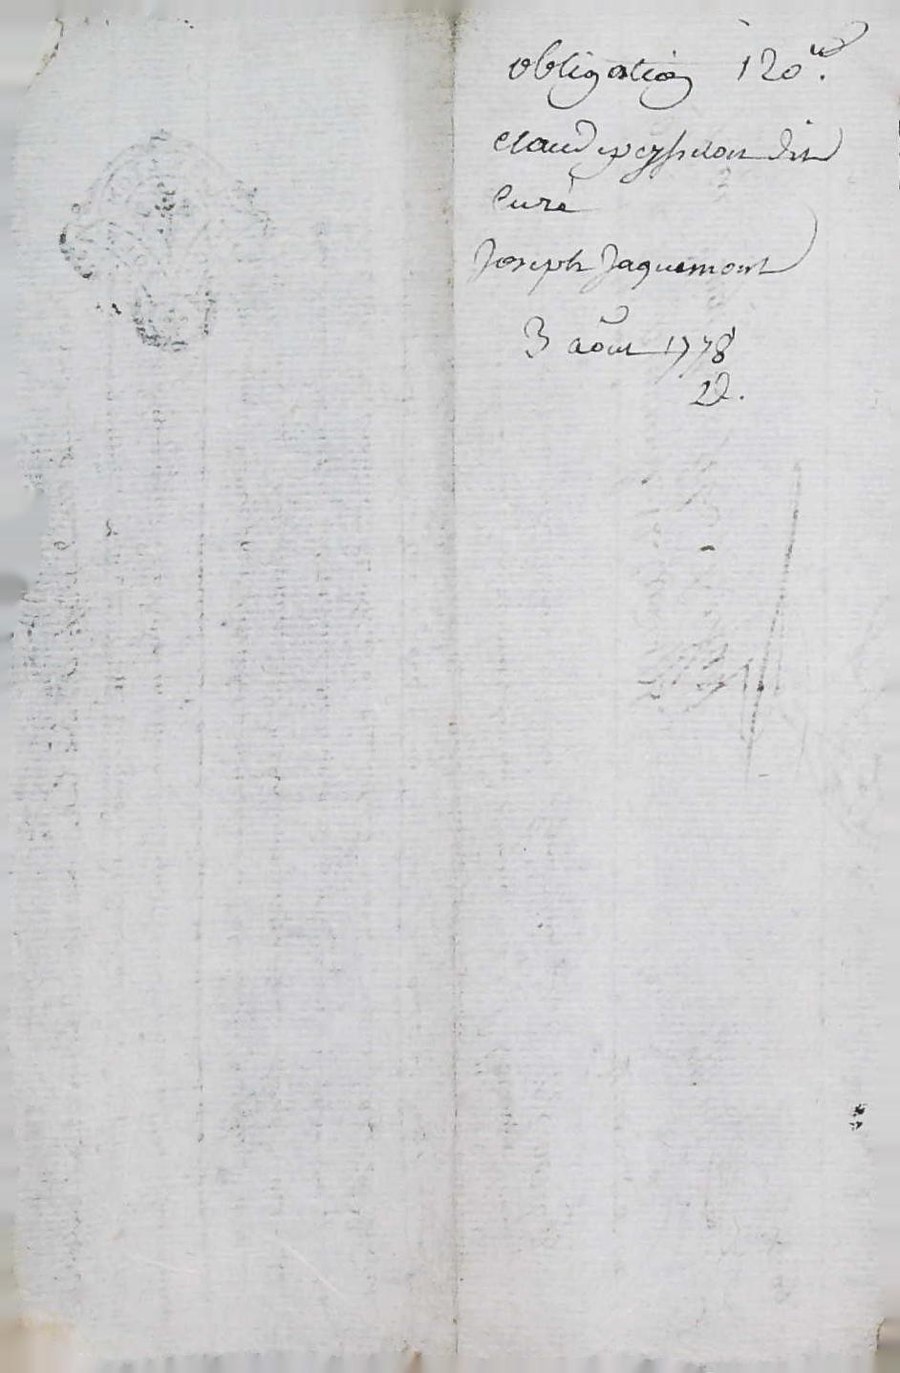 obligation 120ᵗᵗ.
Claud peysselon dit
Curé
Joseph Jaquemont
3 août 1778
22.